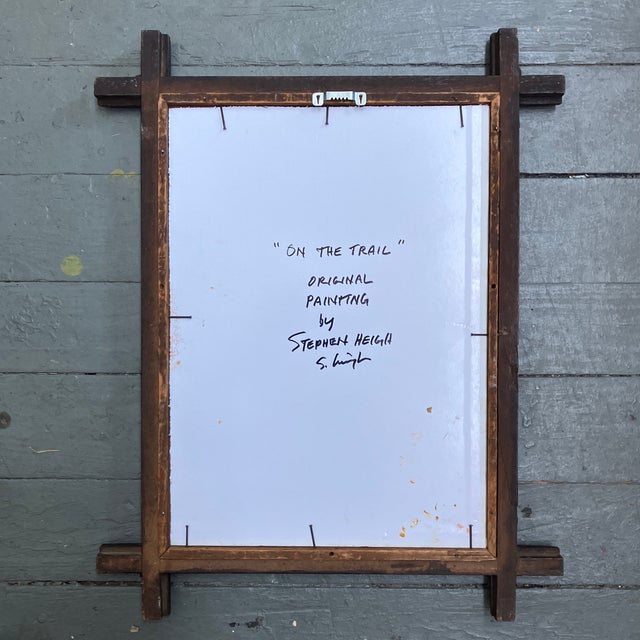 "ON THE TRAIL"
ORIGINAL
PAINTING
by
STEPHEN HEIGH
S. Heigh